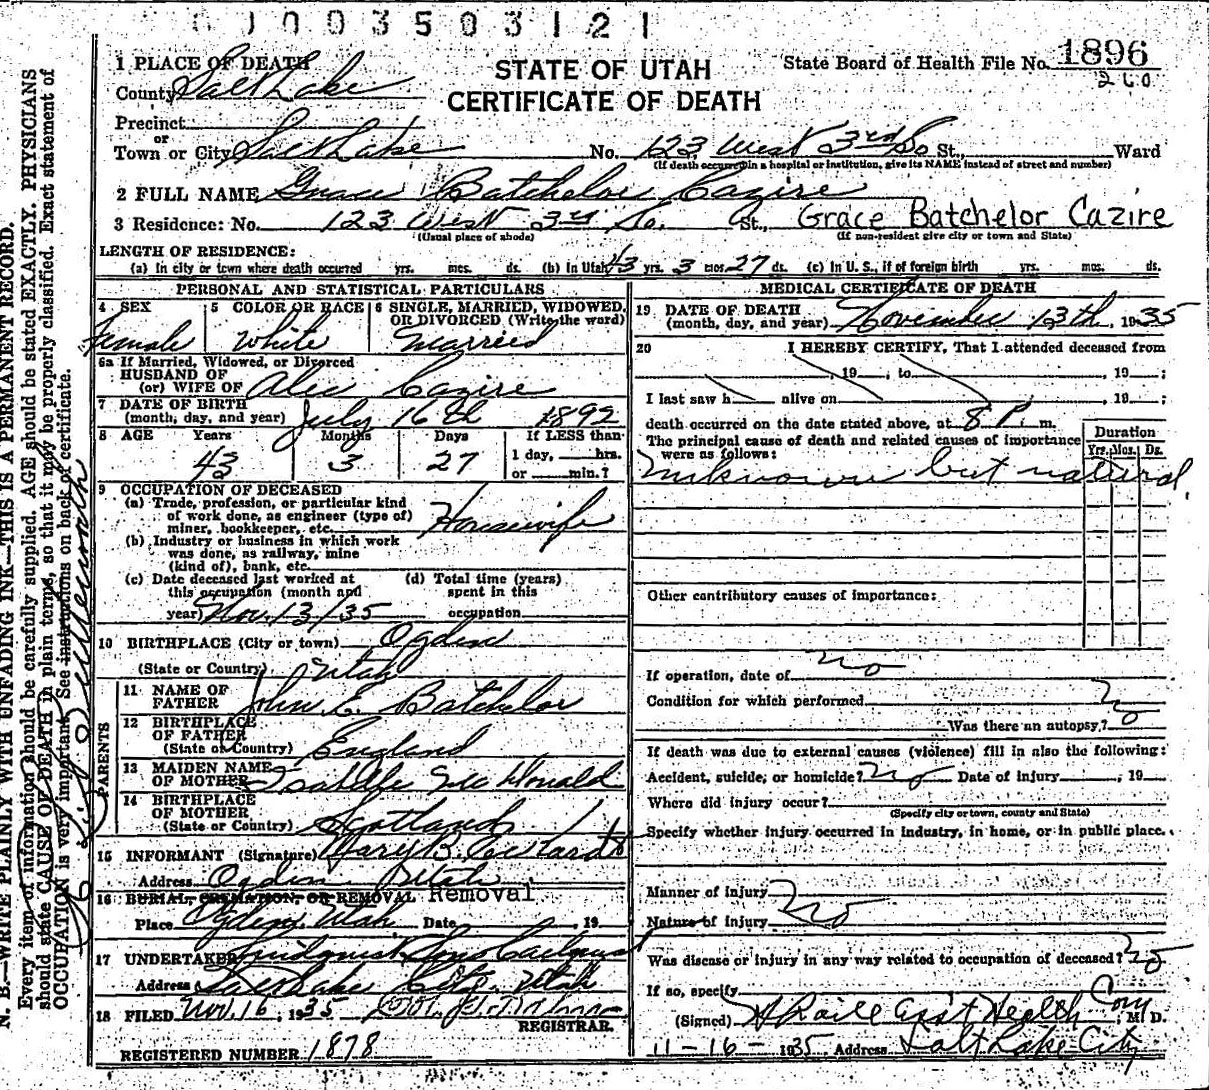 0 1 0 0 3 5 0 3 1 2 1
1 PLACE OF DEATH
County Salt Lake
STATE OF UTAH
CERTIFICATE OF DEATH
State Board of Health File No. 1896
260
Precinct
or
Town or City Salt Lake No. 123 West 3rd So St., Ward
(If death occurred in a hospital or institution, give its NAME instead of street and number)
2 FULL NAME Grace Batchelor Cazire
3 Residence: No. 123 West 3rd So. St., Grace Batchelor Cazire
(Usual place of abode) (If non-resident give city or town and State)
LENGTH OF RESIDENCE:
(a) In city or town where death occurred yrs. mos. ds. (b) In Utah 43 yrs. 3 mos. 27 ds. (c) In U. S., if of foreign birth yrs. mos. ds.
PERSONAL AND STATISTICAL PARTICULARS
4 SEX 5 COLOR OR RACE 6 SINGLE, MARRIED, WIDOWED, OR DIVORCED (Write the word)
Female White Married
6a If Married, Widowed, or Divorced
HUSBAND OF
(or) WIFE OF Alec Cazire
7 DATE OF BIRTH
(month, day, and year) July 16th 1892
8 AGE Years Months Days If LESS than
1 day, hrs.
43 3 27 or min.?
9 OCCUPATION OF DECEASED
(a) Trade, profession, or particular kind
of work done, as engineer (type of)
miner, bookkeeper, etc. Housewife
(b) Industry or business in which work
was done, as railway, mine
(kind of), bank, etc.
(c) Date deceased last worked at
this occupation (month and
year) Nov. 13/35
(d) Total time (years)
spent in this
occupation
10 BIRTHPLACE (City or town) Ogden
(State or Country) Utah
PARENTS
11 NAME OF
FATHER John E. Batchelor
12 BIRTHPLACE
OF FATHER
(State or Country) England
13 MAIDEN NAME
OF MOTHER McDonald
14 BIRTHPLACE
OF MOTHER
(State or Country) Scotland
15 INFORMANT (Signature) Mary B.
Address Ogden Utah
16 BURIAL, CREMATION, OR REMOVAL Removal
Place Ogden, Utah Date , 19
17 UNDERTAKER
Address Salt Lake City, Utah
18 FILED Nov. 16, 1935
REGISTRAR.
REGISTERED NUMBER 1878
MEDICAL CERTIFICATE OF DEATH
19 DATE OF DEATH
(month, day, and year) November 13th, 1935
20 I HEREBY CERTIFY, That I attended deceased from
, 19 , to , 19 ;
I last saw h alive on , 19 ;
death occurred on the date stated above, at 8 P. m.
The principal cause of death and related causes of importance
were as follows:
Duration
Yrs. Mos. Ds.
unknown but natural.
Other contributory causes of importance:
If operation, date of no
Condition for which performed
Was there an autopsy? no
If death was due to external causes (violence) fill in also the following:
Accident, suicide, or homicide? no Date of injury , 19
Where did injury occur?
(Specify city or town, county and State)
Specify whether injury occurred in industry, in home, or in public place.
Manner of injury no
Nature of injury
Was disease or injury in any way related to occupation of deceased? no
If so, specify
(Signed) Asst Health Com M. D.
11-16-1935 Address Salt Lake City
N. B.—WRITE PLAINLY WITH UNFADING INK—THIS IS A PERMANENT RECORD.
Every item of information should be carefully supplied. AGE should be stated EXACTLY. PHYSICIANS
should state CAUSE OF DEATH in plain terms, so that it may be properly classified. Exact statement of
OCCUPATION is very important. See instructions on back of certificate.